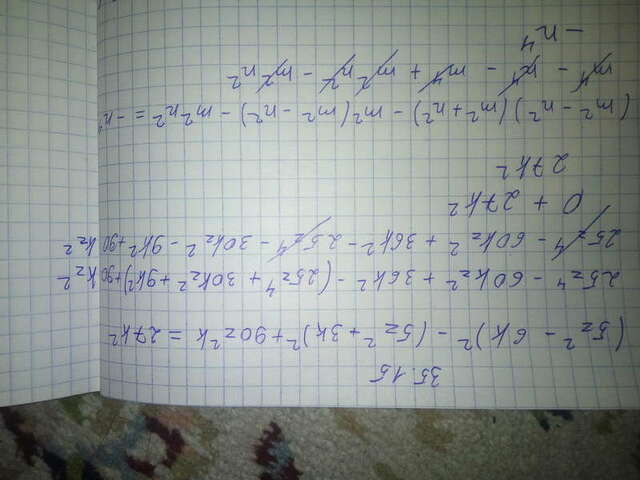 35.15
(5z² - 6k)² - (5z² + 3k)² + 90z²k = 27k²
25z⁴ - 60kz² + 36k² - (25z⁴ + 30kz² + 9k²) + 90kz²
25z⁴ - 60kz² + 36k² - 25z⁴ - 30kz² - 9k² + 90kz²
0 + 27k²
27k²
(m² - n²)(m² + n²) - m²(m² - n²) - m²n² = - n⁴
m⁴ - n⁴ - m⁴ + m²n² - m²n²
- n⁴